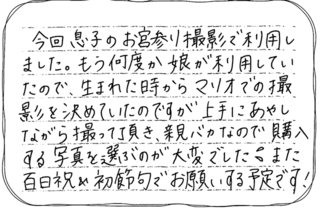 今回息子のお宮参り撮影で利用し
ました。もう何度か娘が利用してい
たので、生まれた時からマリオでの撮
影を決めていたのですが上手にあやし
ながら撮って頂き、親バカなので購入
する写真を選ぶのが大変でした。また
百日祝や初節句でお願いする予定です!